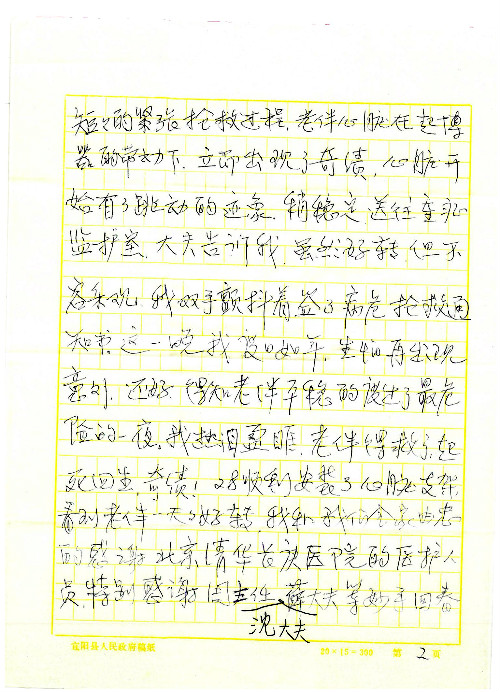 短短的紧张抢救过程，老伴心脏在起博
器的带动下，立即出现了奇绩，心脏开
始有了跳动的迹象，稍稳定，送往重症
监护室，大夫告诉我，虽然好转，但不
容乐观，我双手颤抖着，签了病危抢救通
知书，这一晚我度日如年，生怕再出现
意外，还好，得知老伴平稳的渡过了最危
险的一夜，我热泪盈眶，老伴得救了，起
死回生，奇绩！28顺利安装了心脏支架，
看到老伴一天天好转，我和我的全家
的感谢北京清华长庚医院的医护人
员，特别感谢周主任、薛大夫等妙手回春
沈大夫
宜阳县人民政府稿纸 20×15=300 第 2 页